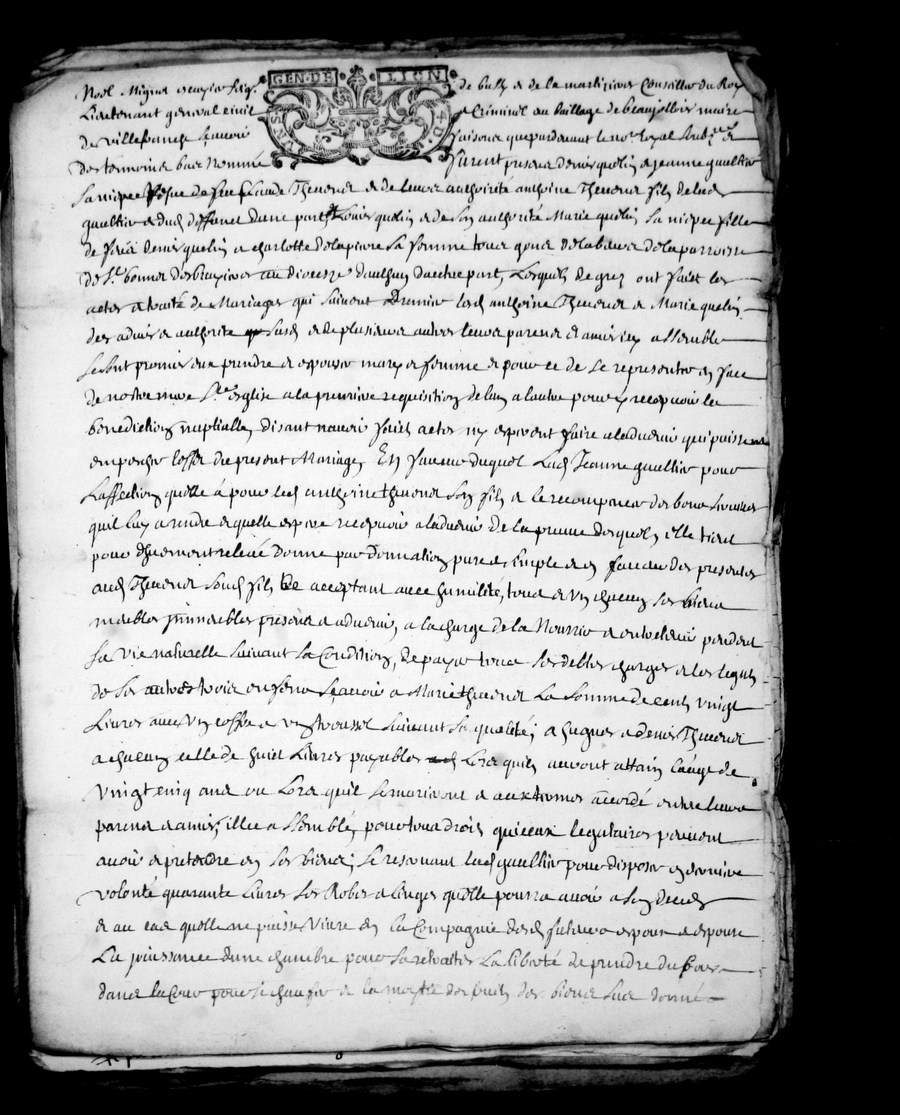 GEN·DE LION
Noel Mignot escuyer seigr. de bussy & de la martiziere Conseiller du Roy
Lieutenant general civil & Criminel au bailliage de beaujollois maire
de villefranche sçavoir faisons que pardevant le nore. royal &
des tesmoins bas nommé furent presens denis quelin & jeanne gaultier
sa niepce vefve de feu Claude Thevenet & de leurs authorité anthoine Thevenet fils de lad
gaultier & dud deffunct dune part & Louis quelin & de son authorité Marie quelin sa niepce fille
de feu denis quelin & charlotte delapierre sa femme tous de la parroisse
de St. bonnet des bruyeres au diocese d'authun dautre part, Lesquels de grez ont faict les
actes & traité de Mariages qui suivent Premier lesd anthoine Thevenet & Marie quelin
des advis & authorité susd & de plusieurs autres leurs parens & amis icy assemblé
se sont promis prendre & espouser mary & femme & pour ce de se representer en face
de nostre mere Ste. esglise a la premiere requisition de lun a lautre pour y recepvoir la
benediction nuptialle, disant navoir faict actes ny esperent faire a ladvenir qui puissent
empescher leffet du present Mariage, En faveur duquel Lad Jeanne gaultier pour
Laffection quelle à pour led anthoine thevenet son fils & le recompencer des bons services
quil luy a rendu & quelle espere recepvoir a ladvenir de la preuve desquels elle tient
pour dhuement relevé donne par donnation pure & simple & en faveur des presentes
aud Thevenet soud fils acceptant avec humilité, tous & un chacun ses biens
meubles immeubles presens & advenir, a la charge de la Nourrir & entretenir pendant
sa vie naturelle suivant sa Condition, de payer tous ses debtes charges & les legats
de ses autres enfens sçavoir a Marie thevenet La somme de cent vingt
Livres avec un coffre & un troussel suivant sa qualité; a hugues & denis Thevenet
a chacun celle de huict Livres payables Lors quils auront attain laage de
vingt cinq ans ou Lors quil se mariront & aux termes accordé entre leurs
parens & amis, illec assemblé, pour tous droits que ceux legataires peuvent
avoir & pretendre en ses biens; se reservant lad gaultier pour disposer en derniere
volonté quarante Livres ses Robes & linges quelle pourra avoir a son decez
& au cas quelle ne puisse vivre en la Compagnie desd futurs espoux & espouse
La jouissance dune chambre pour sa retraittes La liberté de prendre du bois
dans la Cour pour se chaufer & la moytié des fruits des biens sus donné